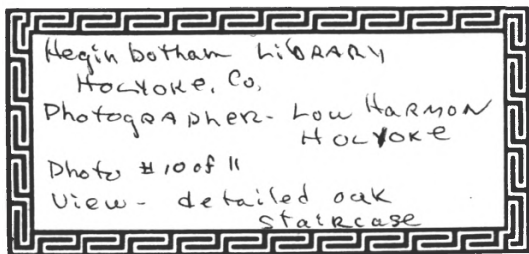 Heginbotham LibRARY
HOLYOKe, Co,
PhotogRAPheR- Lou HARMON
HOLYOKe
Photo #10 of 11
View - detailed oak
staiRcase